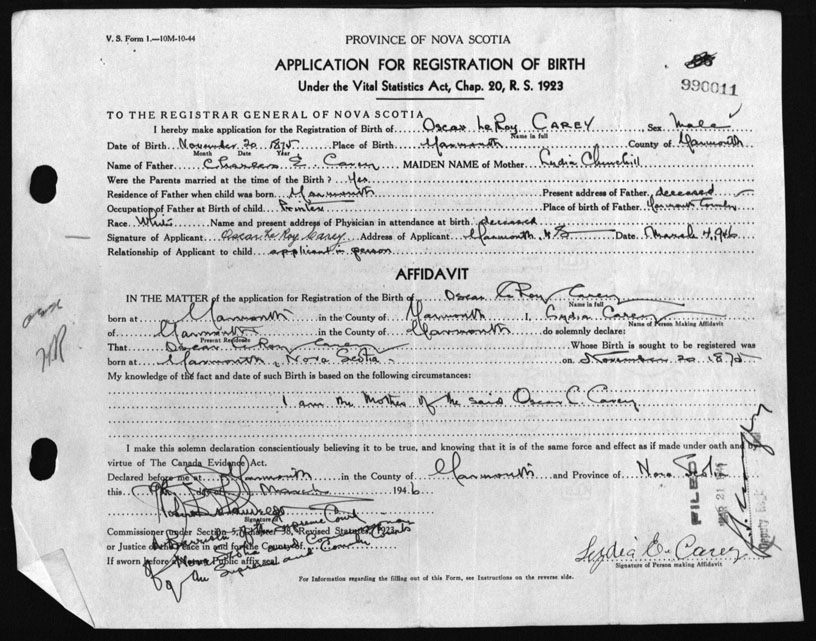 V. S. Form 1.—10M-10-44
PROVINCE OF NOVA SCOTIA
APPLICATION FOR REGISTRATION OF BIRTH
Under the Vital Statistics Act, Chap. 20, R. S. 1923
990011
TO THE REGISTRAR GENERAL OF NOVA SCOTIA
I hereby make application for the Registration of Birth of Oscar LeRoy CAREY Sex Male
Name in full
Date of Birth November 20 1875 Place of Birth Yarmouth County of Yarmouth
Month Date Year
Name of Father Charles E. Carey MAIDEN NAME of Mother Lydia Churchill
Were the Parents married at the time of the Birth? Yes
Residence of Father when child was born Yarmouth Present address of Father deceased
Occupation of Father at Birth of child Printer Place of birth of Father Yarmouth County
Race White Name and present address of Physician in attendance at birth deceased
Signature of Applicant Oscar Le Roy Carey Address of Applicant Yarmouth, N S Date March 4, 1946
Relationship of Applicant to child applicant in person
AFFIDAVIT
IN THE MATTER of the application for Registration of the Birth of Oscar Le Roy Carey
Name in full
born at Yarmouth in the County of Yarmouth I, Lydia Carey
Name of Person Making Affidavit
of Yarmouth in the County of Yarmouth do solemnly declare:
Present Residence
That Oscar LeRoy Carey Whose Birth is sought to be registered was
born at Yarmouth, Nova Scotia on November 20 1875
My knowledge of the fact and date of such Birth is based on the following circumstances:
I am the Mother of the said Oscar L. Carey
I make this solemn declaration conscientiously believing it to be true, and knowing that it is of the same force and effect as if made under oath and by
virtue of The Canada Evidence Act.
Declared before me at Yarmouth in the County of Yarmouth and Province of Nova Scotia
this day of March 1946
Signature of
Commissioner (under Section 5, Chapter 38, Revised Statutes, 1923
A Barrister of the Supreme Court
or Justice of the Peace in and for the County of
of Nova Scotia
If sworn before a Notary Public affix seal
FILED
MAR 21 1946
Lydia E. Carey
Signature of Person making Affidavit
For Information regarding the filling out of this Form, see Instructions on the reverse side.